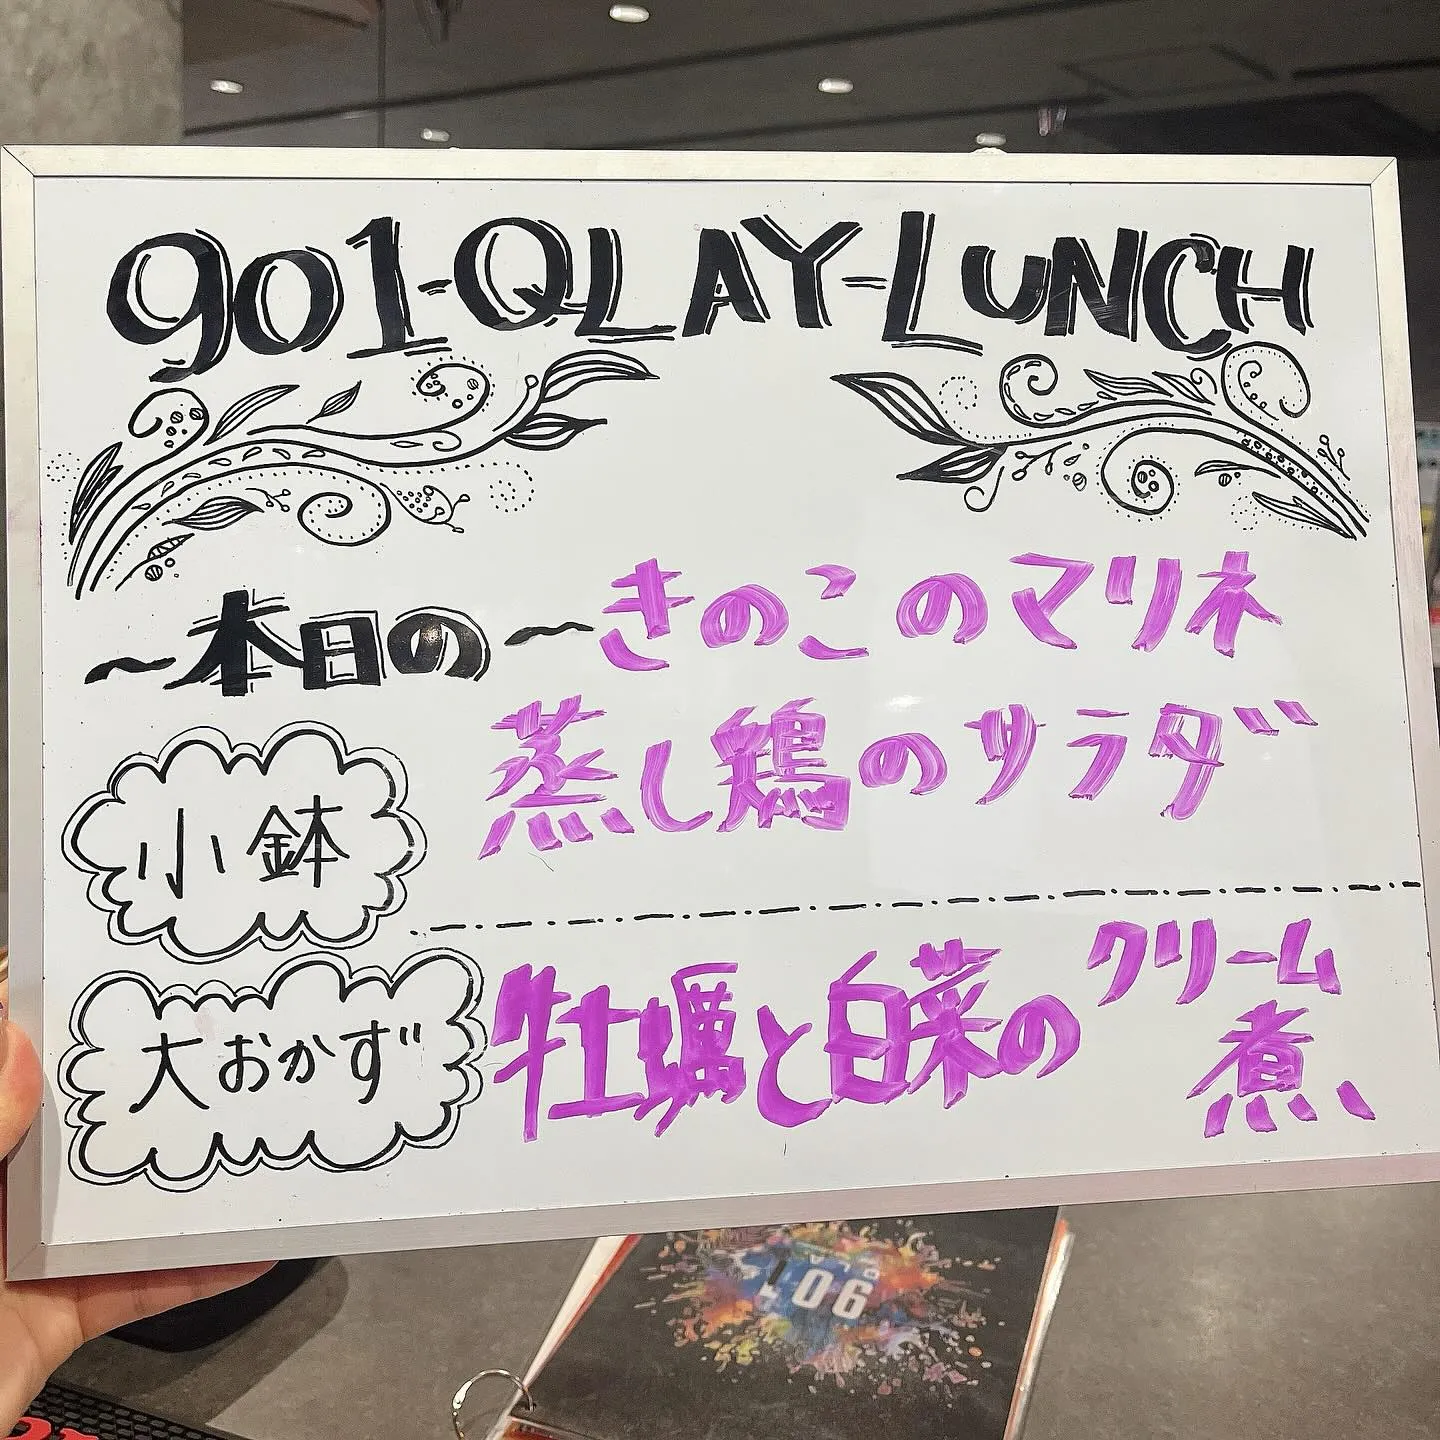 901-QLAY-LUNCH
～本日の～
きのこのマリネ
蒸し鶏のサラダ
小鉢
大おかず
牡蠣と白菜のクリーム
煮、
901
QLAY